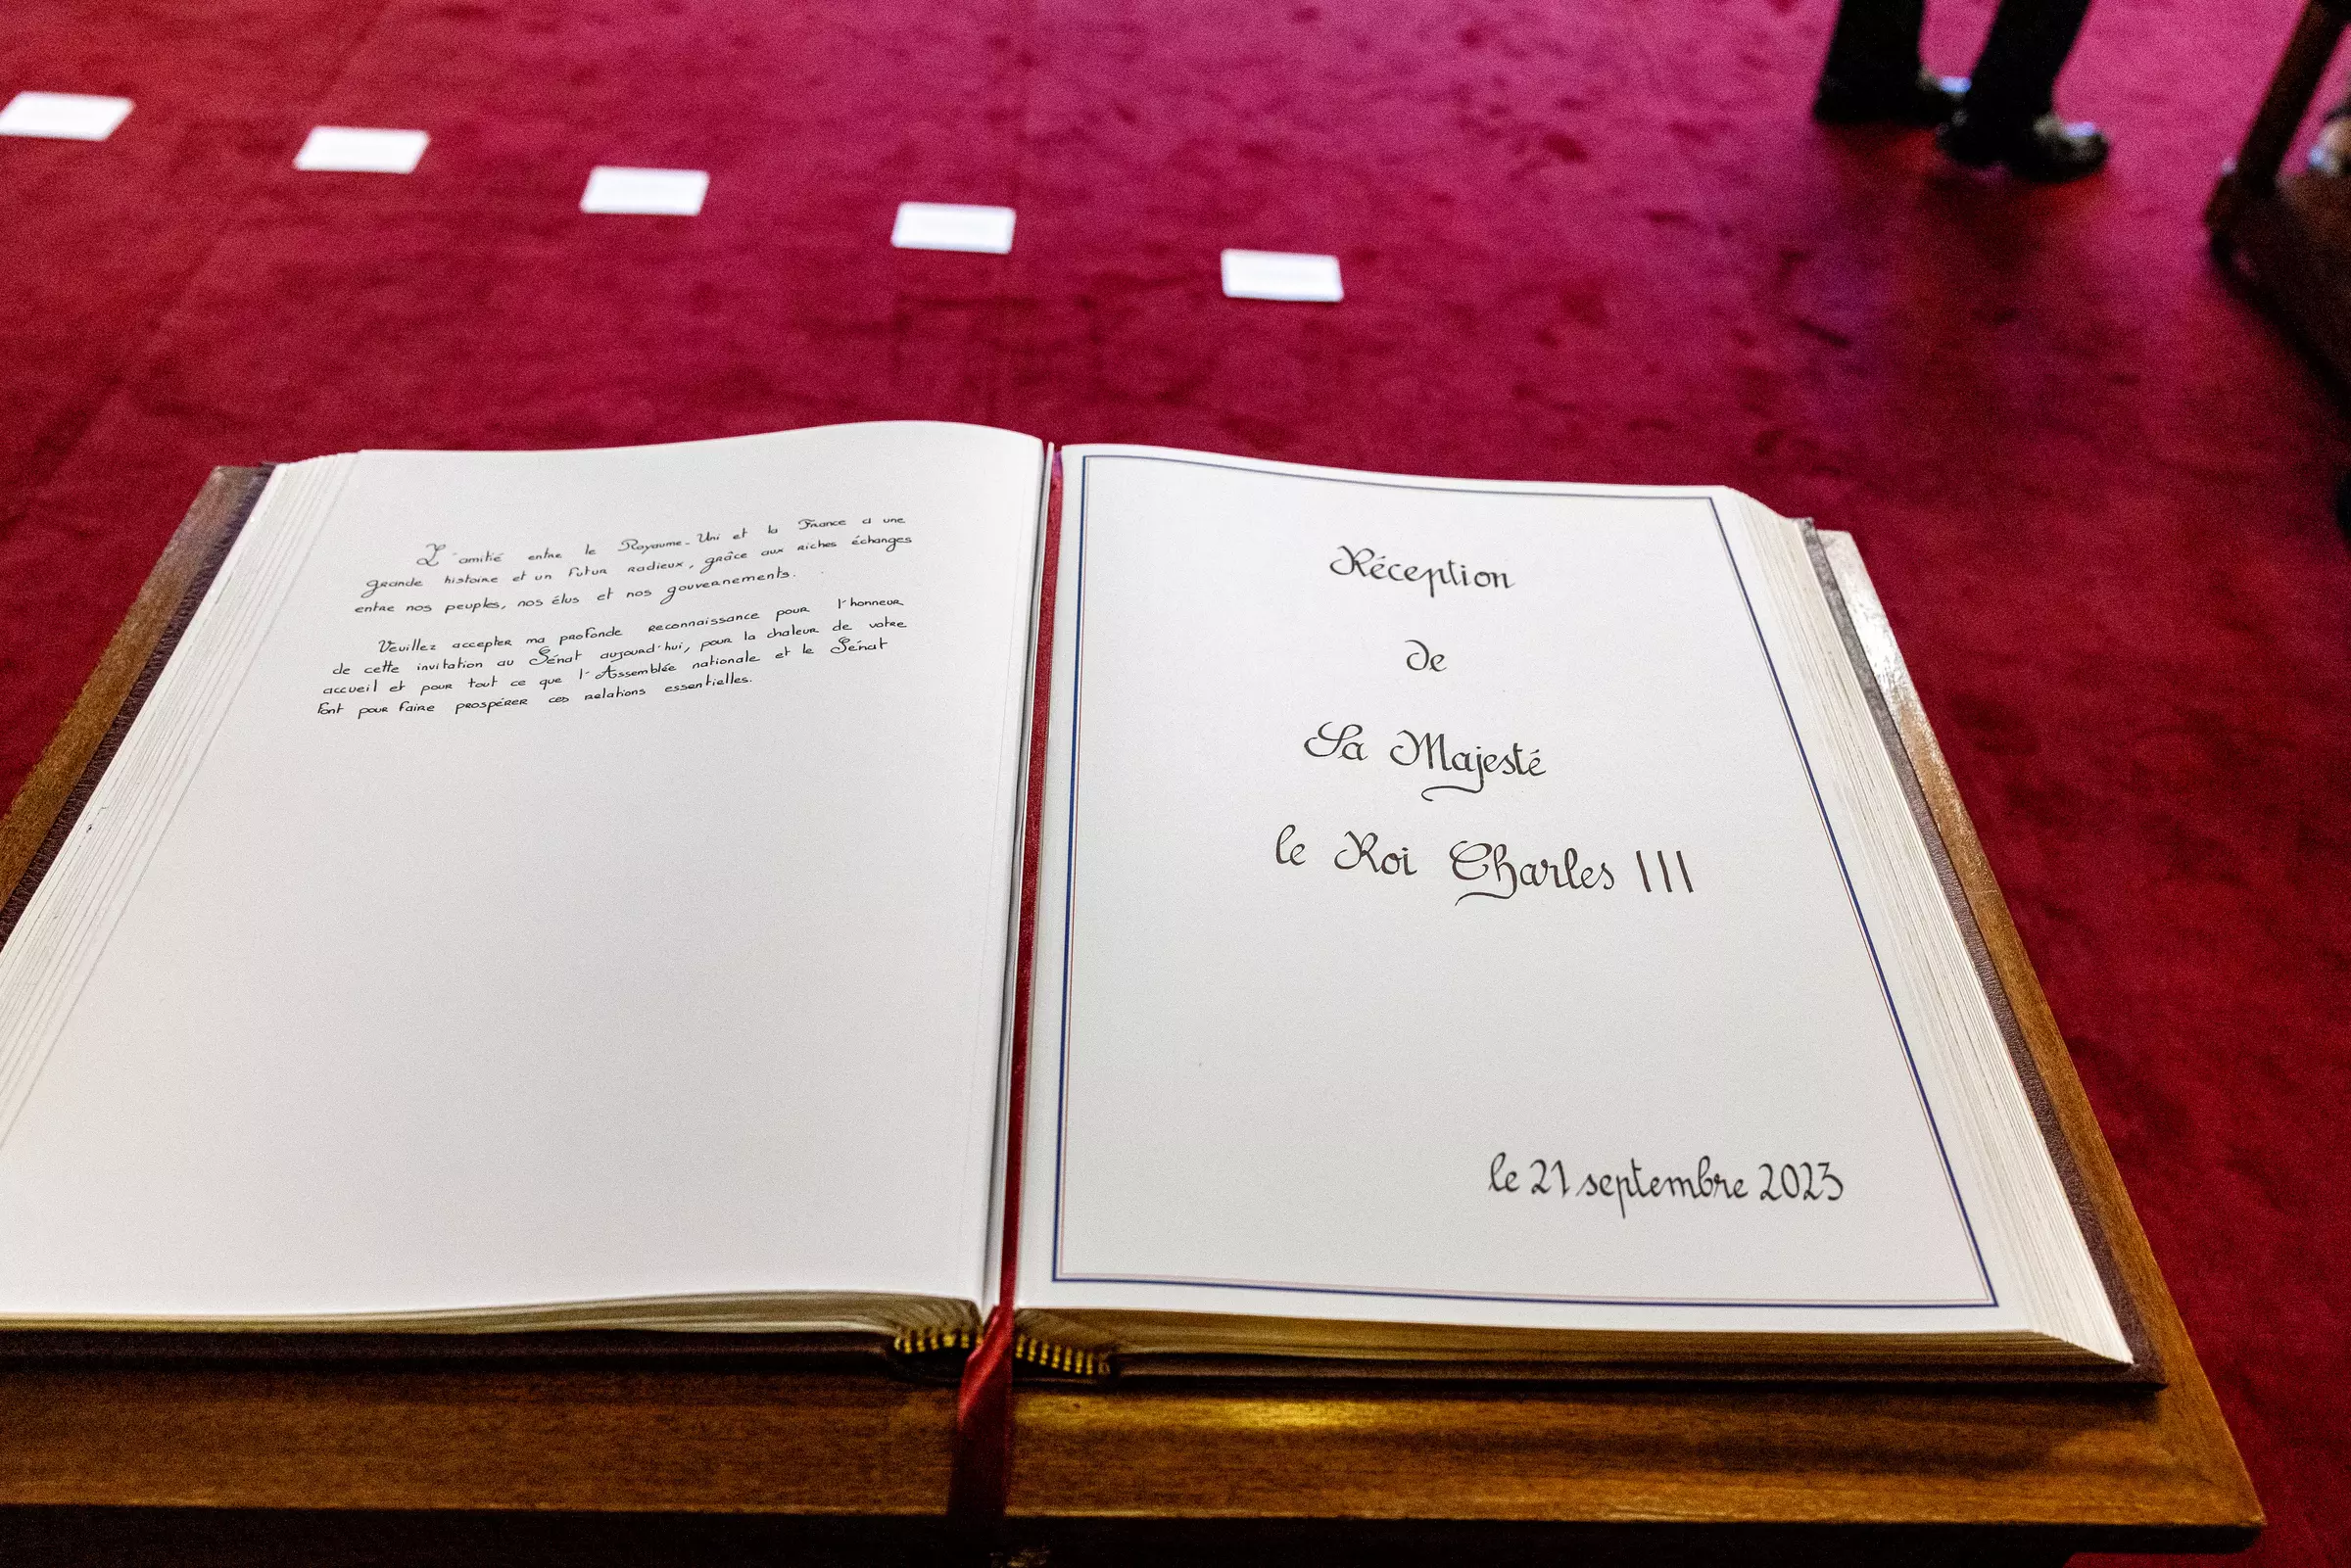 L'amitié entre le Royaume-Uni et la France a une
grande histoire et un futur radieux, grâce aux riches échanges
entre nos peuples, nos élus et nos gouvernements.
Veuillez accepter ma profonde reconnaissance pour l'honneur
de cette invitation au Sénat aujourd'hui, pour la chaleur de votre
accueil et pour tout ce que l'Assemblée nationale et le Sénat
font pour faire prospérer ces relations essentielles.
Réception
de
Sa Majesté
le Roi Charles III
le 21 septembre 2023